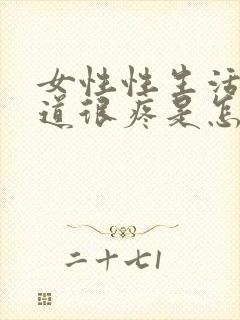 女性性生活
道很疼是怎
二十七1